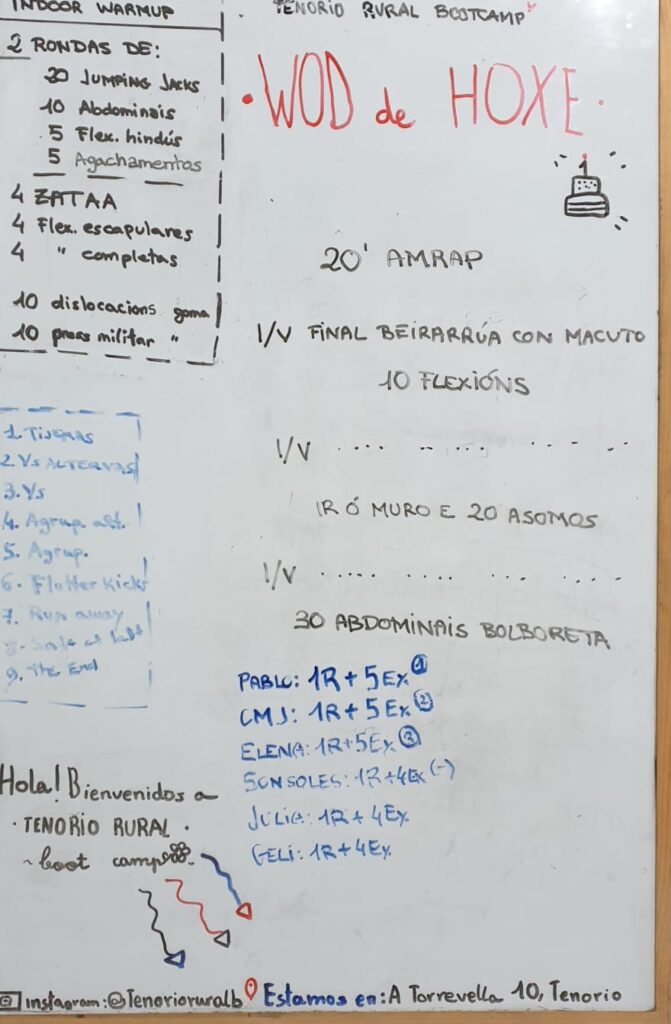 INDOOR WARMUP
2 RONDAS DE:
20 JUMPING JACKS
10 Abdominais
5 Flex. hindús
5 Agachamentos
4 ZATAA
4 Flex. escapulares
4 " completas
10 dislocacions goma
10 press militar "
1. TIJERAS
2. Vs ALTERNAS
3. Vs
4. Agrup. alt.
5. Agrup.
6. Flutter Kicks
7. Run away
8. Safe at last
9. The End
Hola! Bienvenidos a
· TENORIO RURAL ·
~ boot camp
TENORIO RURAL BOOTCAMP
· WOD de HOXE ·
1
20' AMRAP
I/V FINAL BEIRARRÚA CON MACUTO
10 FLEXIÓNS
I/V .... .. .... .. . . .
IR Ó MURO E 20 ASOMOS
I/V ..... .... ... ....
30 ABDOMINAIS BOLBORETA
PABLO: 1R + 5Ex ①
CMJ: 1R + 5 Ex ②
ELENA: 1R+5Ex ③
SONSOLES: 1R+4Ex (-)
JULIA: 1R + 4Ex
GELI: 1R+4Ex
instagram: @Tenorioruralb Estamos en: A Torrevella 10, Tenorio